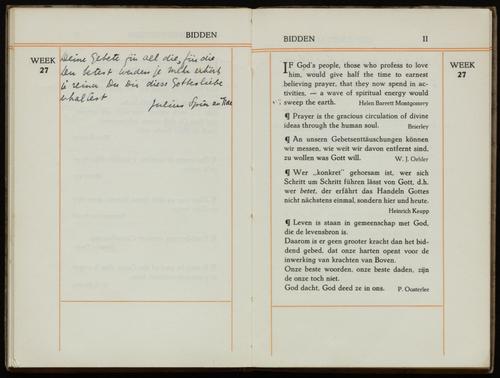 BIDDEN
WEEK
27
Deine Gebete für all die, für die
Du betest werden je mehr erhört
je reiner Du dir diese Gottesliebe
erhältst
Julius
BIDDEN II
WEEK
27
IF God's people, those who profess to love
him, would give half the time to earnest
believing prayer, that they now spend in ac-
tivities, — a wave of spiritual energy would
sweep the earth. Helen Barrett Montgomery
¶ Prayer is the gracious circulation of divine
ideas through the human soul. Brierley
¶ An unsern Gebetsenttäuschungen können
wir messen, wie weit wir davon entfernt sind,
zu wollen was Gott will. W. J. Oehler
¶ Wer „konkret" gehorsam ist, wer sich
Schritt um Schritt führen lässt von Gott, d.h.
wer betet, der erfährt das Handeln Gottes
nicht nächstens einmal, sondern hier und heute.
Heinrich Keupp
¶ Leven is staan in gemeenschap met God,
die de levensbron is.
Daarom is er geen grooter kracht dan het bid-
dend gebed, dat onze harten opent voor de
inwerking van krachten van Boven.
Onze beste woorden, onze beste daden, zijn
de onze toch niet.
God dacht, God deed ze in ons. P. Oosterlee